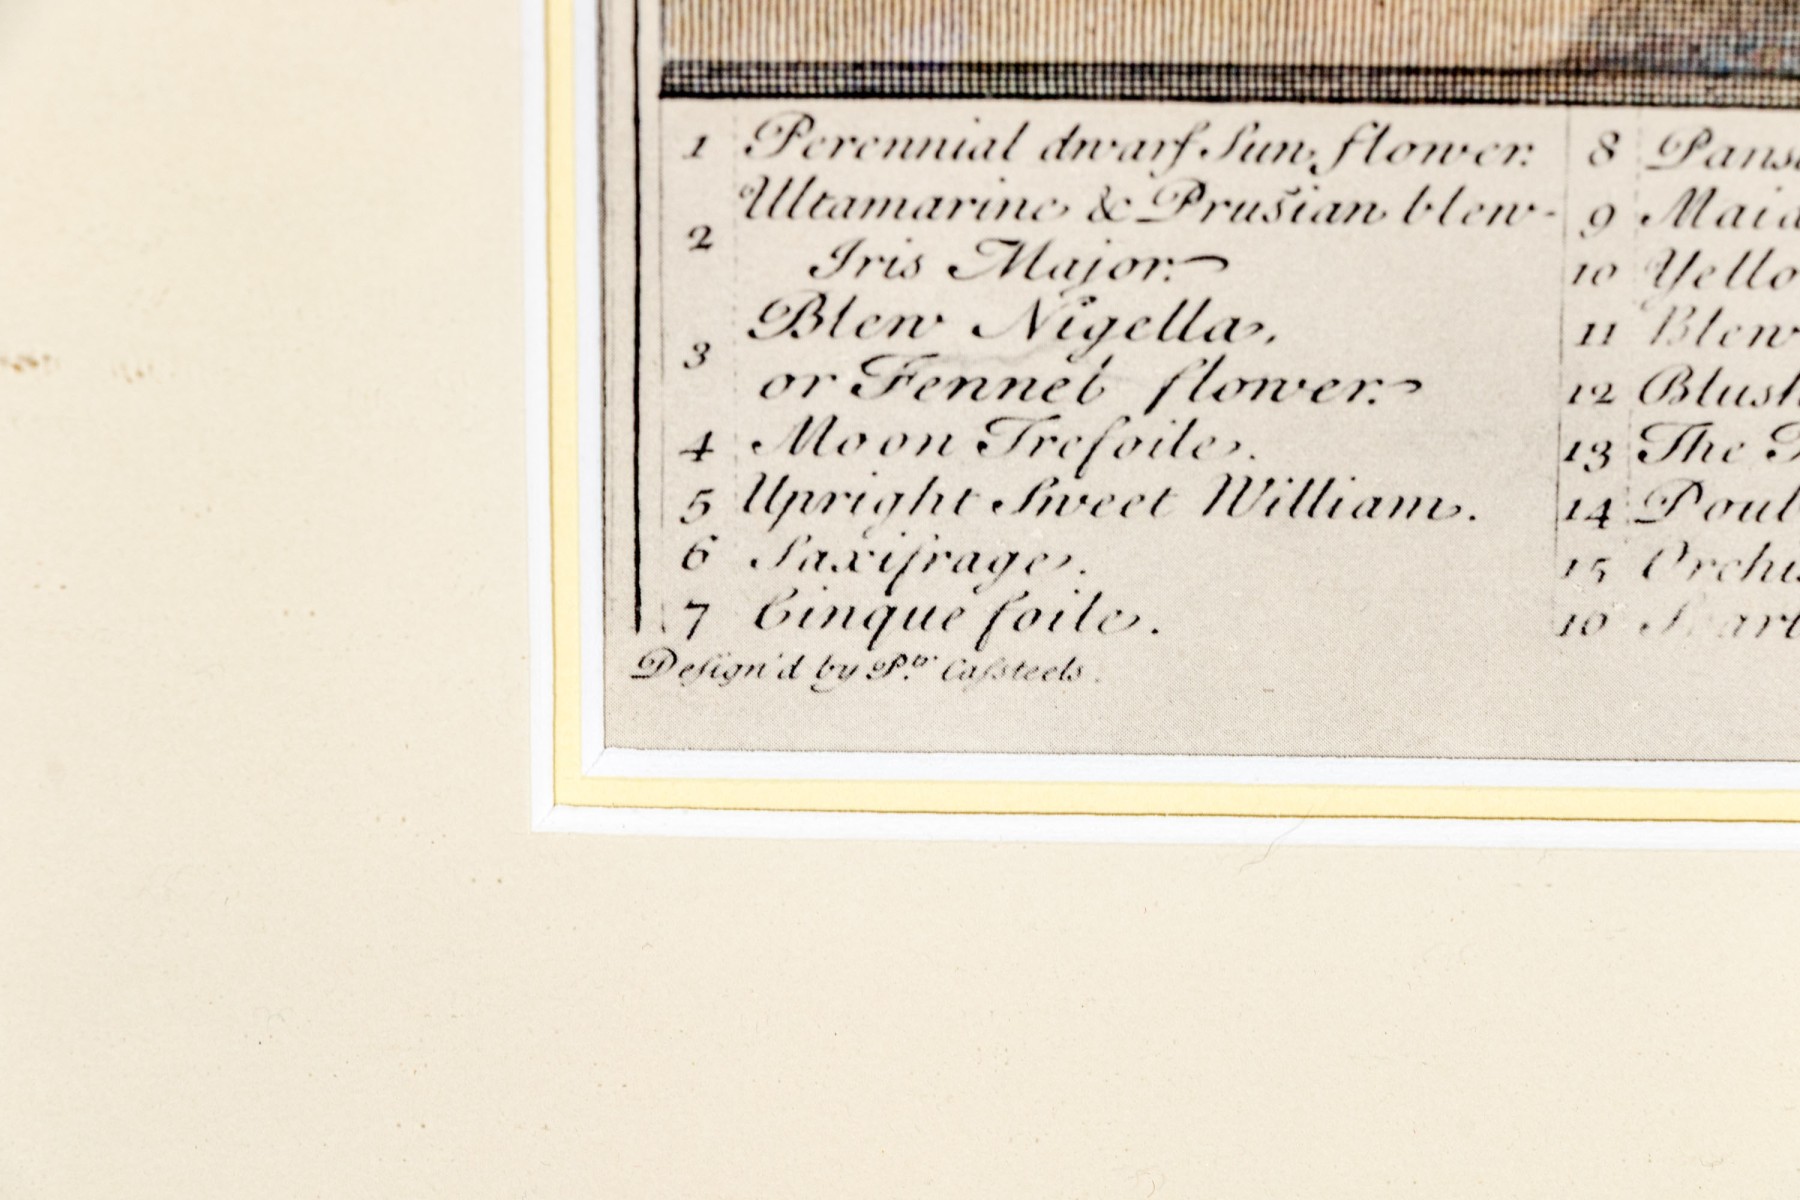 1 Perennial dwarf Sun flower.
Ultamarine & Prusian blew
2
Iris Major.
3 Blew Nigella,
or Fennel flower.
4 Moon Trefoile.
5 Upright Sweet William.
6 Saxifrage.
7 Cinque foile.
Design'd by Pr. Casteels.
8 Pans
9 Maid
10 Yello
11 Blew
12 Blush
13 The
14 Doub
15 Orchis
16